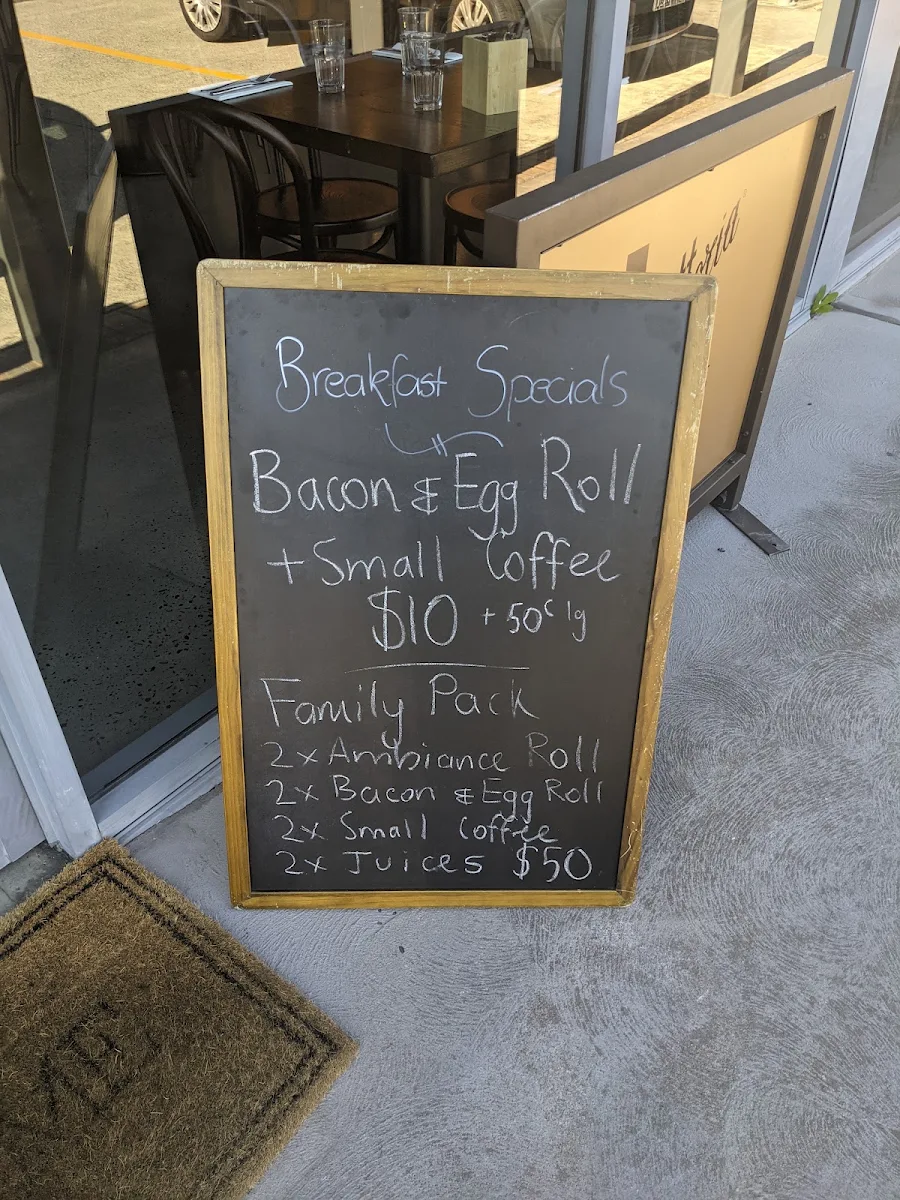 Breakfast Specials
Bacon & Egg Roll
+ Small Coffee
$10 + 50c lg
Family Pack
2x Ambiance Roll
2x Bacon & Egg Roll
2x Small Coffee
2x Juices $50